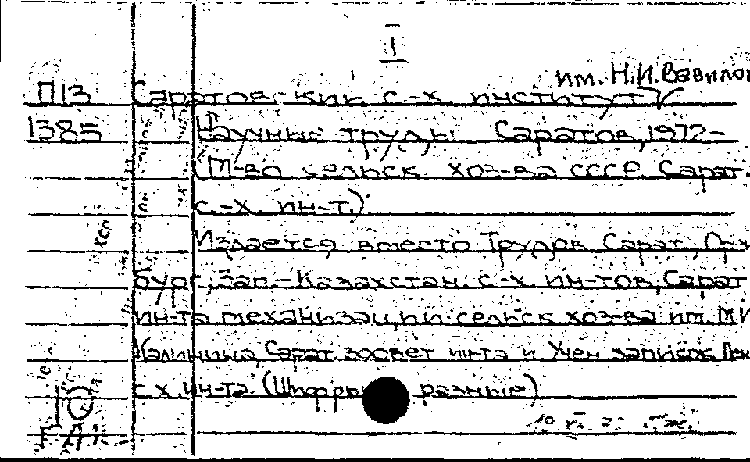 I
им. Н.И. Вавилов
П13 Саратовский с.-х. институт
1385 Научные труды. Саратов, 1972-
(М-во сельск. хоз-ва СССР. Сарат.
с.-х. ин-т.)
Издается вместо Трудов Сарат., Орен
бург., Зап.-Казахстан. с.-х. ин-тов, Сарат
ин-та механизации сельск. хоз-ва им. М.И
Калинина, Сарат. зоовет ин-та и Учен. записок Пен
с.х. ин-та (Шифры разные)